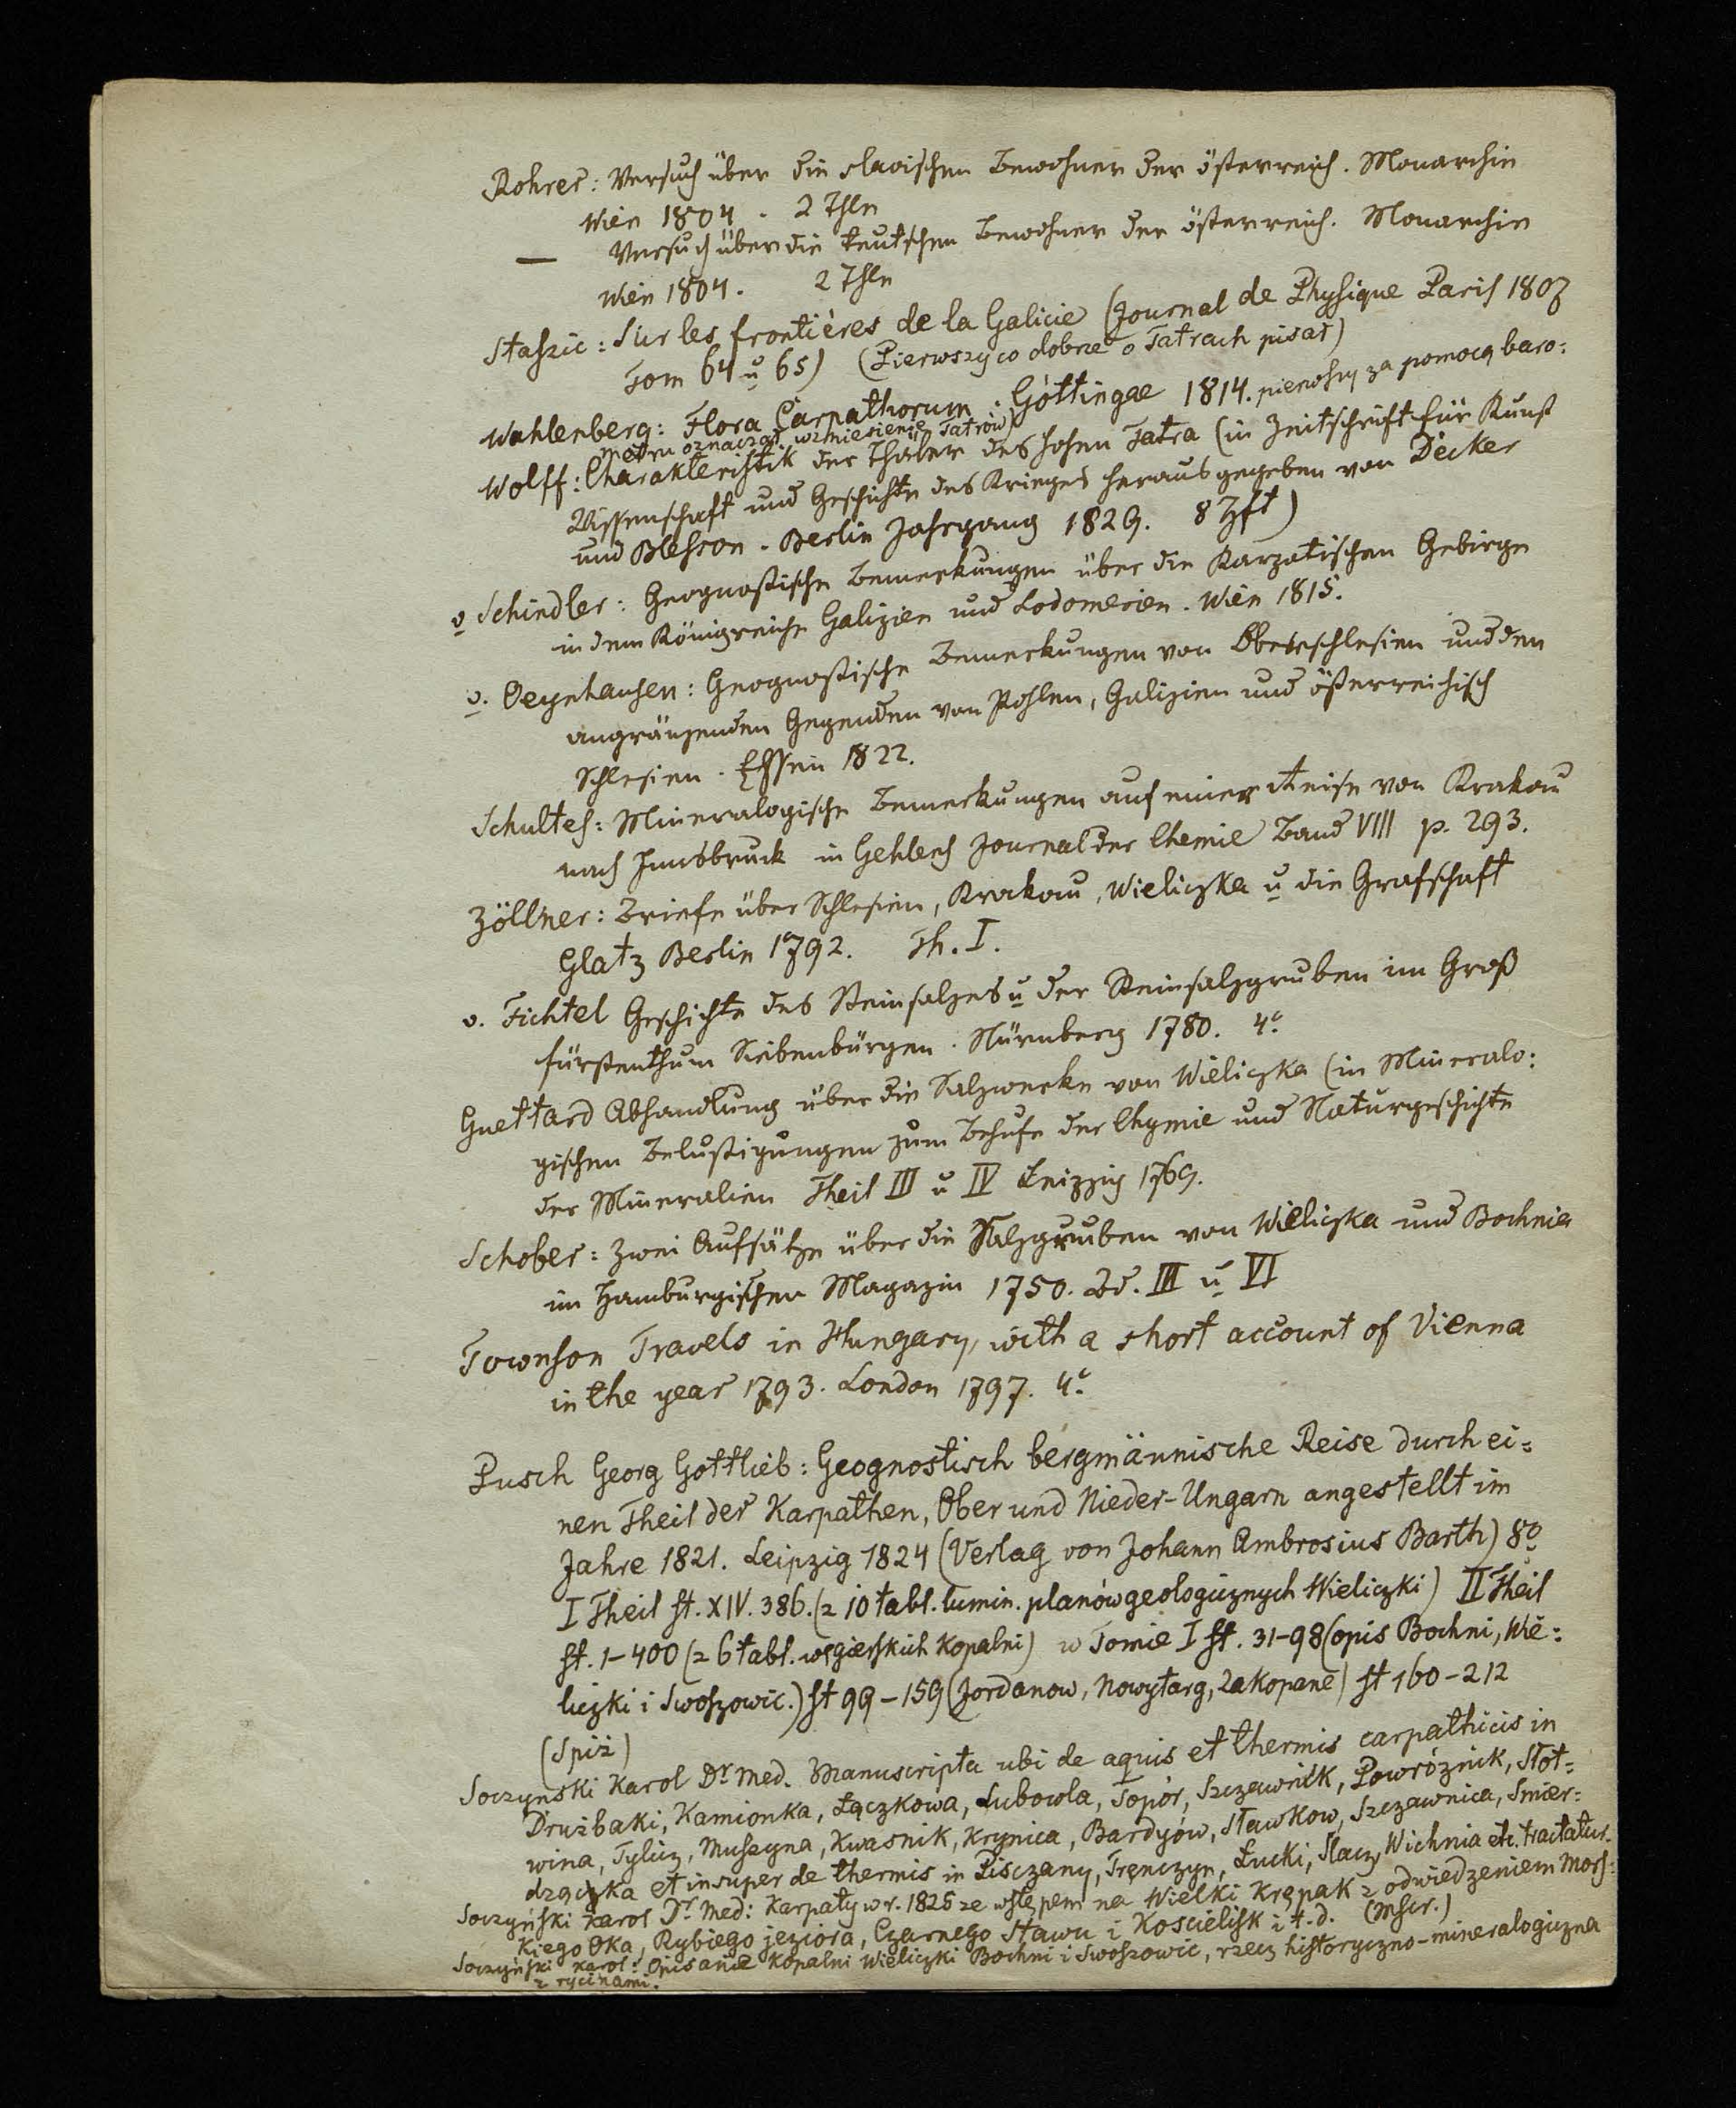 Rohrer: Versuch über die slavischen Bewohner der österreich. Monarchie
Wien 1804. 2 Thle
— Versuch über die teutschen Bewohner der österreich. Monarchie
Wien 1804. 2 Thle
Staszic: Sur les frontières de la Galicie (Journal de Physique Paris 1807
Tom 64 u 65) (Pierwszy co dobrze o Tatrach pisał)
Wahlenberg: Flora Carpathorum. Göttingae 1814. pierwszy za pomocą baro:
metru oznaczał wzniesienie Tatrów)
Wolff: Charakteristik der Thäler des hohen Tatra (in Zeitschrift für Kunst
Wissenschaft und Geschichte des Krieges herausgegeben von Decker
und Blesson. Berlin Jahrgang 1829. 8 Hft)
v Schindler: Geognostische Bemerkungen über die Karpatischen Gebirge
in dem Königreiche Galizien und Lodomerien. Wien 1815.
v. Oeynhausen: Geognostische Bemerkungen von Oberschlesien und den
angränzenden Gegenden von Pohlen, Galizien und österreichisch
Schlesien. Essen 1822.
Schultes: Mineralogische Bemerkungen auf einer Reise von Krakau
nach Innsbruck in Gehlens Journal der Chemie Band VIII p. 293.
Zöllner: Briefe über Schlesien, Krakau, Wieliczka u die Grafschaft
Glatz Berlin 1792. Th. I.
v. Fichtel Geschichte des Steinsalzes u der Steinsalzgruben im Groß
fürstenthum Siebenbürgen. Nürnberg 1780. 4º
Guettard Abhandlung über die Salzwerke von Wieliczka (in Mineralo:
gischen Belustigungen zum Behufe der Chymie und Naturgeschichte
der Mineralien Theil III u IV Leipzig 1769.
Schober: Zwei Aufsätze über die Salzgruben von Wieliczka und Bochnia
im Hamburgischen Magazin 1750. Bd. III u VI
Townson Travels in Hungary, with a short account of Vienna
in the year 1793. London 1797. 4º
Pusch Georg Gottlieb: Geognostisch bergmännische Reise durch ei=
nen Theil der Karpathen, Ober und Nieder-Ungarn angestellt im
Jahre 1821. Leipzig 1824 (Verlag von Johann Ambrosius Barth) 8º
I Theil st. XIV. 386. (z 10 tabl. lumin. planów geologicznych Wieliczki) II Theil
st. 1-400 (z 6 tabl. węgierskich kopalni) w Tomie I st. 31-98 (opis Bochni, Wie:
liczki i Swoszowic.) st 99-159 (Jordanow, Nowytarg, Zakopane) st 160-212
(Spiż)
Soczynski Karol Dr med. Manuscripta ubi de aquis et thermis carpathicis in
Drużbaki, Kamionka, Łączkowa, Lubowla, Topór, Szczawnik, Powróznik, Słot=
wina, Tylicz, Muszyna, Kwasnik, Krynica, Bardyów, Sławkow, Szczawnica, Smier:
dzączka et insuper de thermis in Pisczany, Trenczyn, Łucki, Slacz, Wichnia etc. tractatur.
Soczyński Karol Dr Med: Karpaty w r. 1825 ze wstępem na Wielki Krępak z odwiedzeniem Mors=
kiego Oka, Rybiego jeziora, Czarnego Stawu i Koscielisk i t.d. (Mscr.)
Soczyński Karol: Opisanie kopalni Wieliczki Bochni i Swoszowic, rzecz historyczno-mineralogiczna
z rycinami.